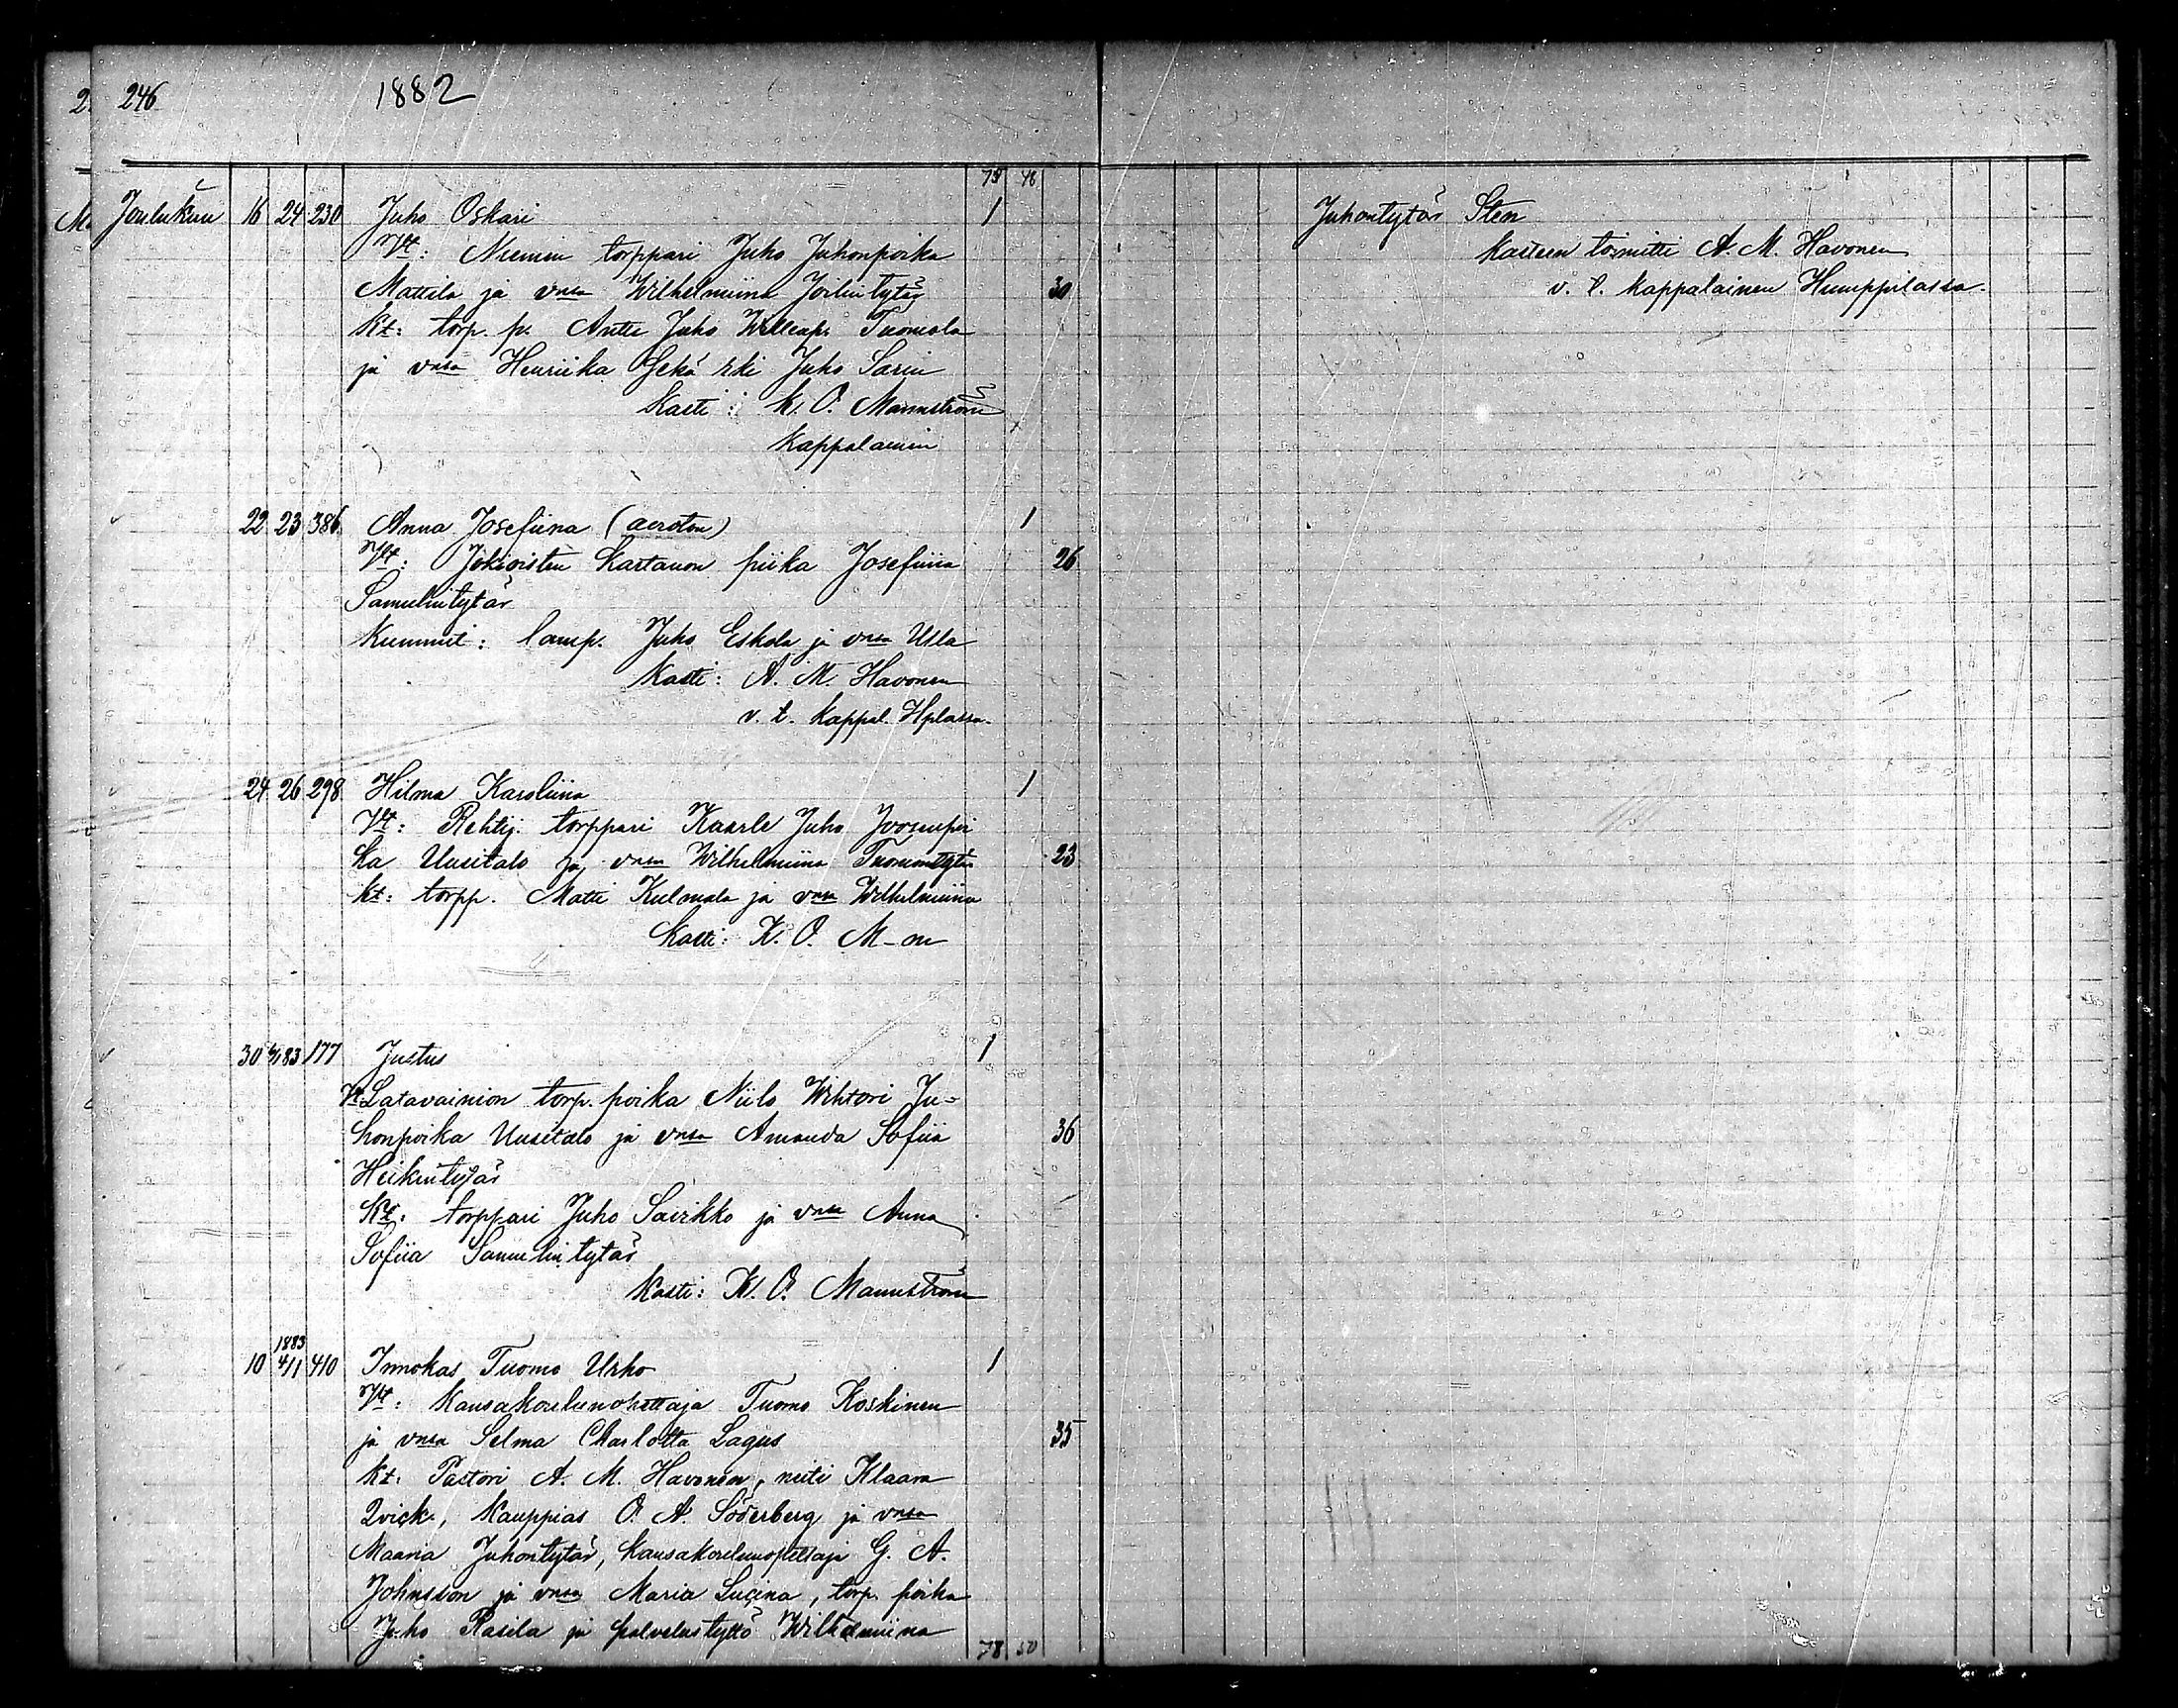 246 1882
75 48
Joulukuu 16 24 230 Juho Oskari 1
Vt: Niemen torppari Juho Juhonpoika
Mattila ja vmsa Wilhelmiina Jooseintytär 30
Kt: torp. p. Antti Juho Tuomola
ja vmsa Henriika Sekä rki Juho Sarin
Kasti: K. O. Mannström
Kappalainen
22 23 386 Anna Josefiina (avioton) 1
Vt: Jokioisten Kartanon piika Josefiina 26
Samulintytär
Kummit: lamp. Juho Eskola ja vmsa Ulla
Kasti: A. M. Havonen
v. t. Kappal. Hplassa.
24 26 298 Hilma Karoliina 1
Vt: Rehtij. torppari Kaarle Juho Joosepinpoi
ka Uusitalo ja vmsa Wilhelmiina Tuomontytär 23
Kt: torpp. Matti Kulmala ja vmsa Wilhelmiina
Kasti: K. O. M-m
30 83 177 Justus 1
Vt. Latavainion torp. poika Niilo Wihtori Ju=
honpoika Uusitalo ja vmsa Amanda Sofiia 36
Heikintytär
Kt: torppari Juho Sairkko ja vmsa Anna
Sofiia Samulintytär
Kasti: K. O. Mannström
1883
10 4/1 410 Innokas Tuomo Urho 1
Vt: Kansakoulunopettaja Tuomo Koskinen
ja vmsa Selma Charlotta Lagus 35
Kt: Pastori A. M. Havonen, neiti Klaara
Qvick, Kauppias O. A. Söderberg ja vmsa
Maaria Juhontytär, Kansakoulunopettaja G. A.
Johnsson ja vmsa Maria Lucina, torp. poika
Juho Rasila ja palvelustyttö Wilhelmiina
78 50
Juhontytär Sten
Kasteen toimitti A. M. Havonen
v. t. Kappalainen Humppilassa.